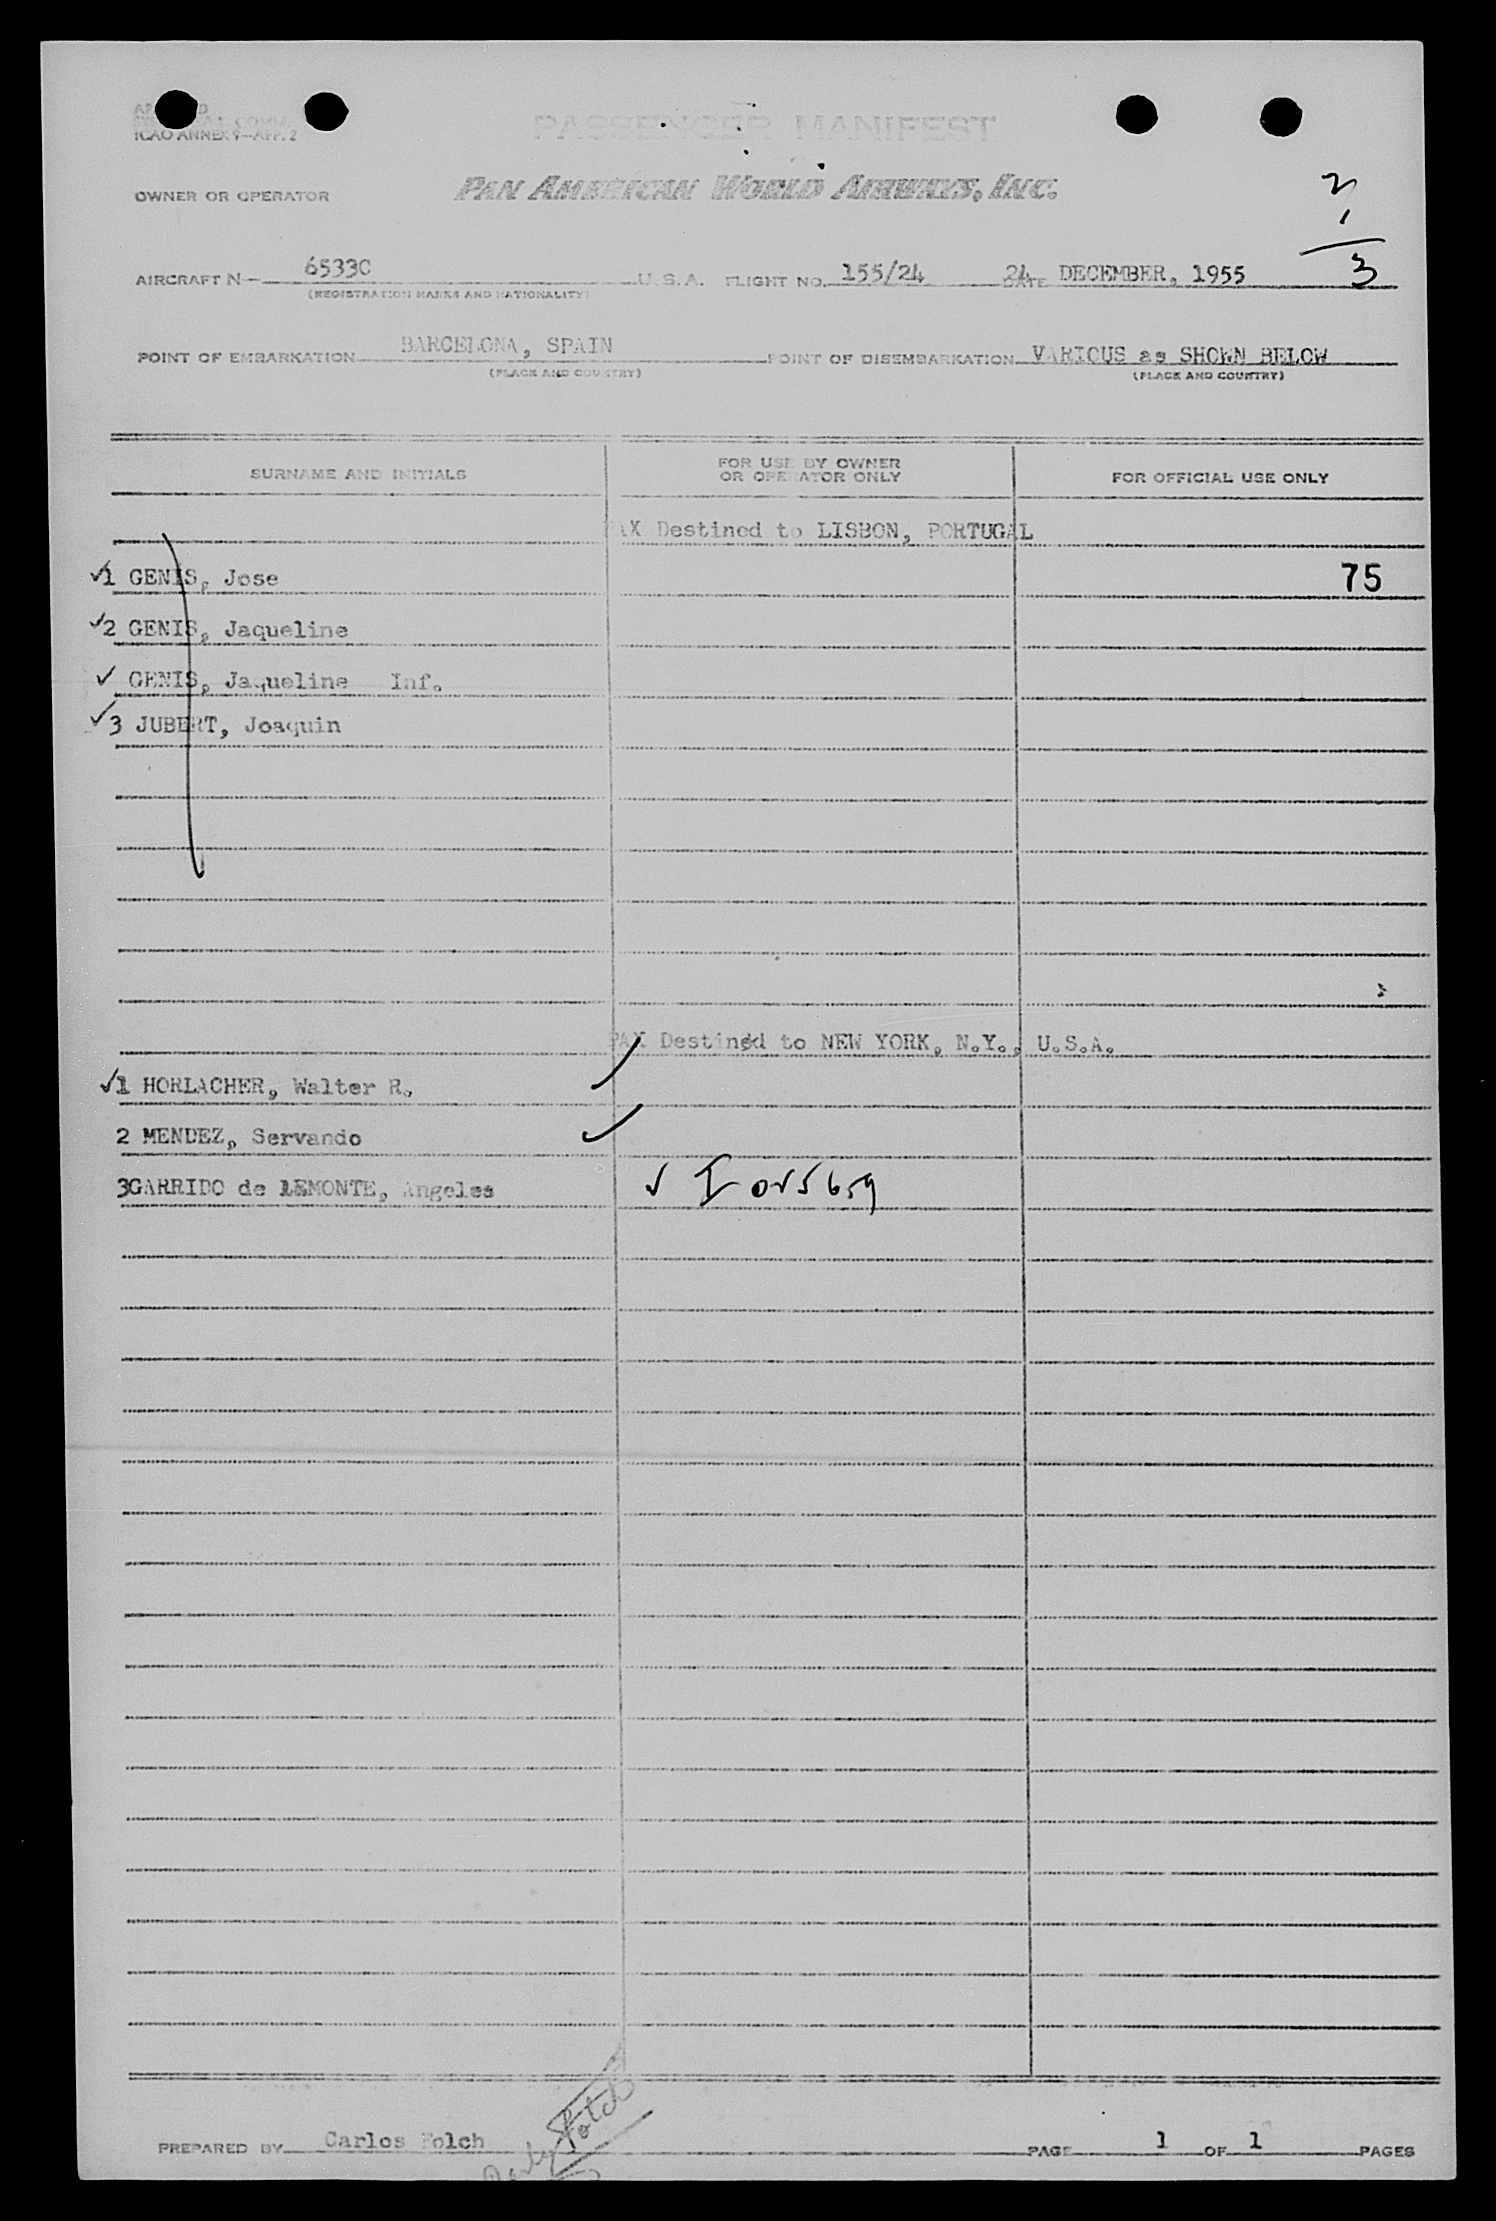 ICAO ANNEX 9—APP. 2
PASSENGER MANIFEST
OWNER OR OPERATOR PAN AMERICAN WORLD AIRWAYS, INC.
2
1
3
AIRCRAFT N— 6533C U.S.A. FLIGHT NO. 155/24 24 DATE DECEMBER, 1955
(REGISTRATION MARKS AND NATIONALITY)
POINT OF EMBARKATION BARCELONA, SPAIN POINT OF DISEMBARKATION VARIOUS as SHOWN BELOW
(PLACE AND COUNTRY) (PLACE AND COUNTRY)
SURNAME AND INITIALS FOR USE BY OWNER OR OPERATOR ONLY FOR OFFICIAL USE ONLY
PAX Destined to LISBON, PORTUGAL
✓1 GENIS, Jose 75
✓2 GENIS, Jaqueline
✓ GENIS, Jaqueline Inf.
✓3 JUBERT, Joaquin
PAX Destined to NEW YORK, N.Y., U.S.A.
✓1 HORLACHER, Walter R. ✓
2 MENDEZ, Servando ✓
3GARRIDO de LEMONTE, Angeles ✓
PREPARED BY Carlos Folch PAGE 1 OF 1 PAGES